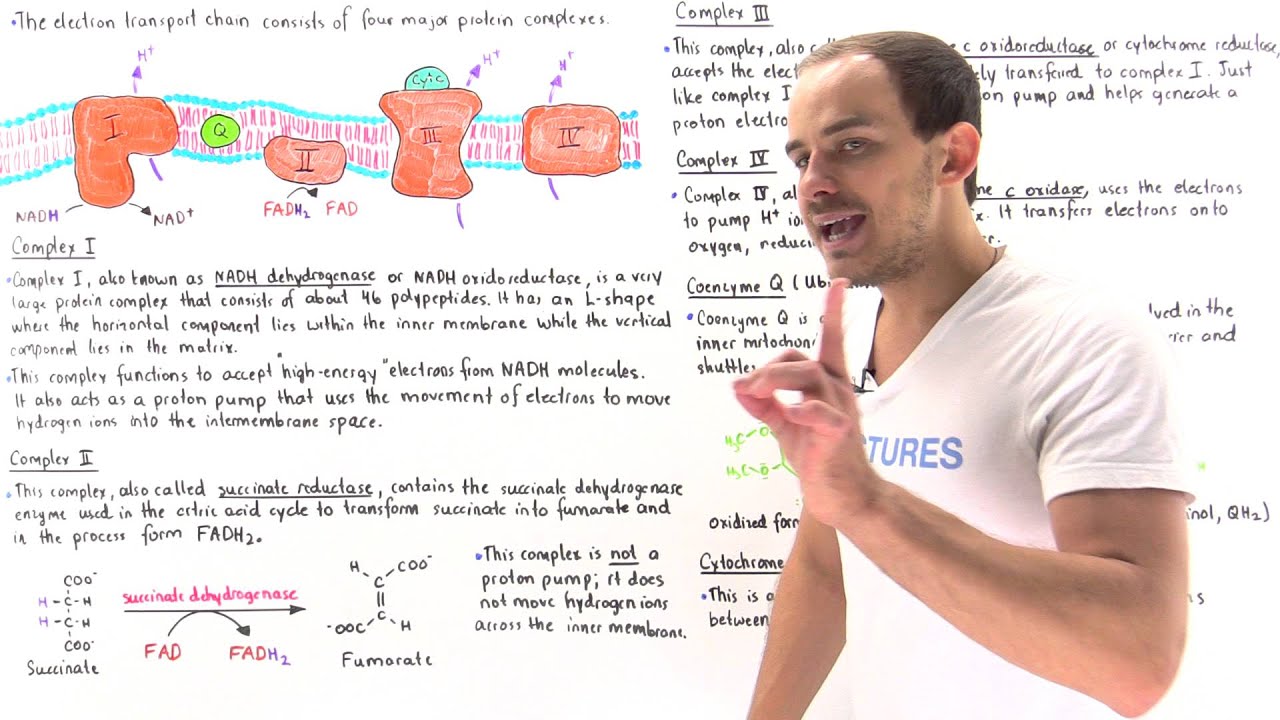 •The electron transport chain consists of four major protein complexes.
H+
H+
H+
Cyt C
I
Q
II
III
IV
NADH
NAD+
FADH2
FAD
Complex I
•Complex I, also known as NADH dehydrogenase or NADH oxidoreductase, is a very
large protein complex that consists of about 46 polypeptides. It has an L-shape
where the horizontal component lies within the inner membrane while the vertical
component lies in the matrix.
•This complex functions to accept "high-energy" electrons from NADH molecules.
It also acts as a proton pump that uses the movement of electrons to move
hydrogen ions into the intermembrane space.
Complex II
•This complex, also called succinate reductase, contains the succinate dehydrogenase
enzyme used in the citric acid cycle to transform succinate into fumarate and
in the process form FADH2.
COO-
H-C-H
H-C-H
COO-
Succinate
succinate dehydrogenase
FAD
FADH2
H
COO-
C
C
-OOC
H
Fumarate
•This complex is not a
proton pump; it does
not move hydrogen ions
across the inner membrane.
Complex III
•This complex, also c oxidoreductase or cytochrome reductase,
accepts the transferred to complex I. Just
like complex I pump and helps generate a
proton
Complex IV
•Complex IV, c oxidase, uses the electrons
to pump H+ It transfers electrons onto
oxygen,
Coenzyme Q
•Coenzyme Q is in the
inner and
H3C-O
H3C-O
H
Oxidized QH2)
Cytochrome
•This is a
between
TURES